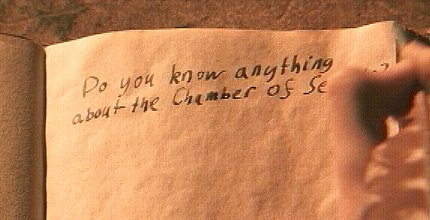 Do you know anything
about the Chamber of Se